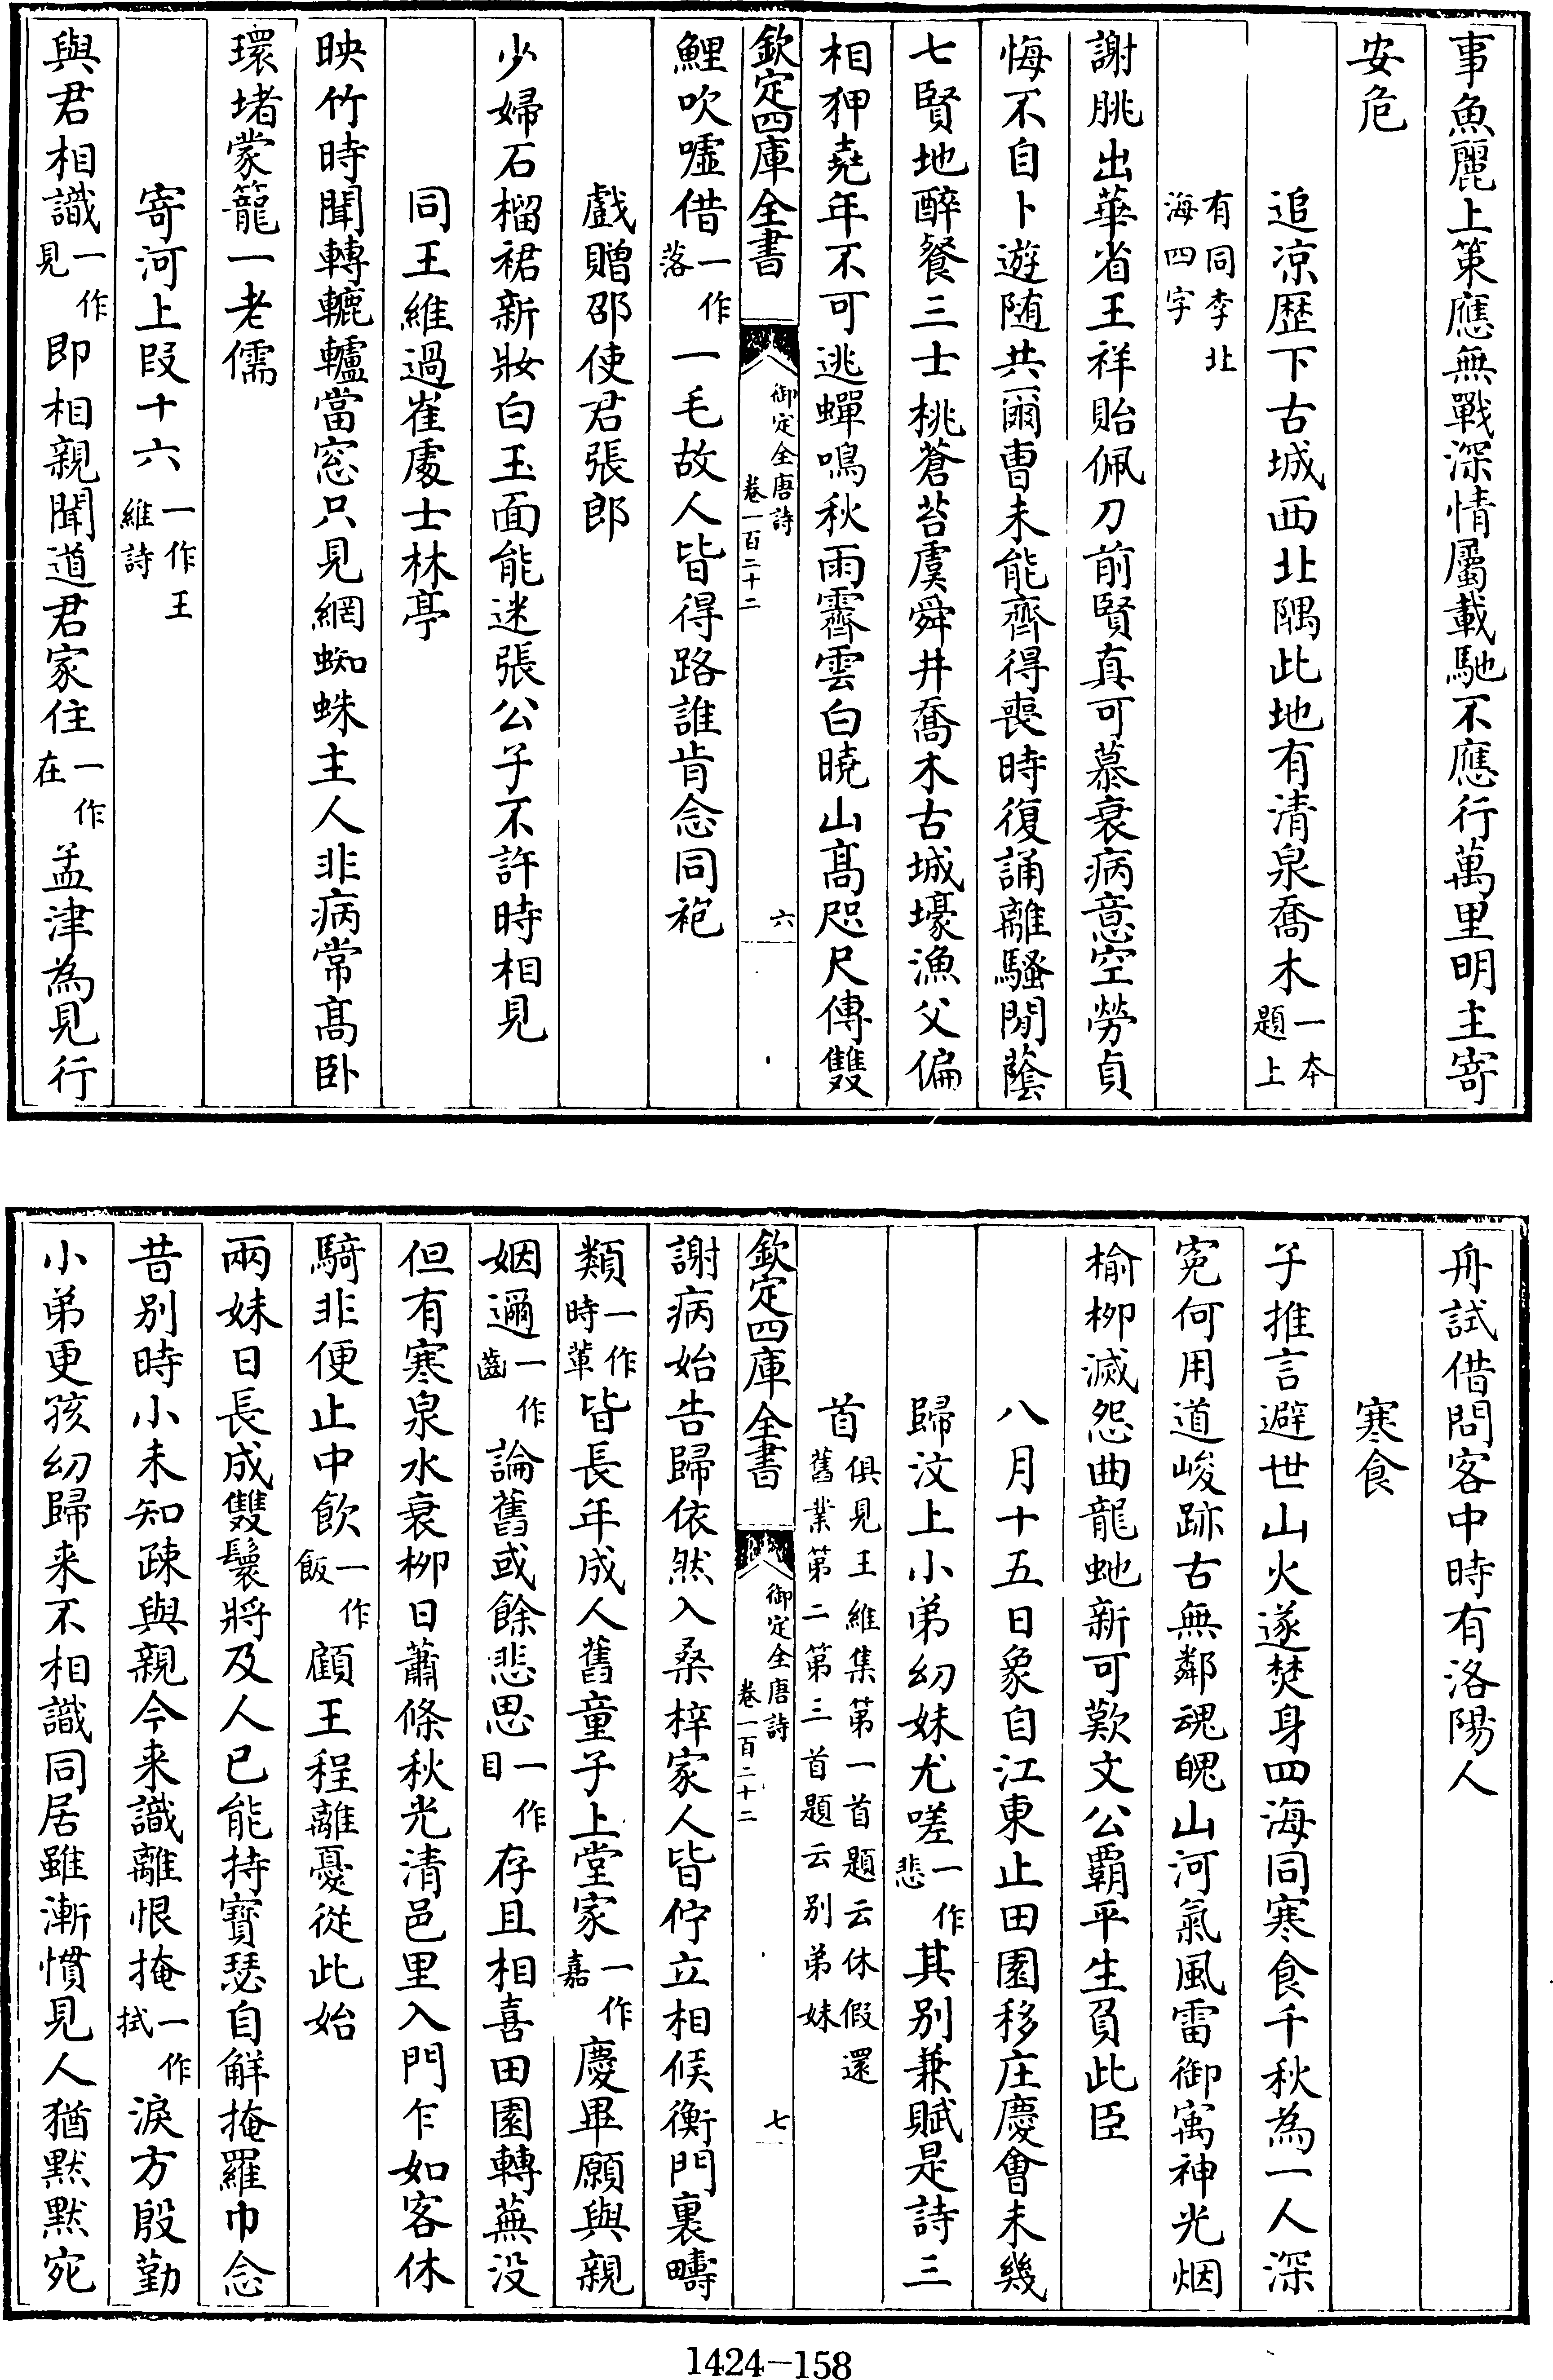 事魚麗上策應無戰深情屬載馳不應行萬里明主寄
安危
追涼歴下古城西北隅此地有清泉喬木一本題上
有同李北海四字
謝朓出華省王祥貽佩刀前賢真可慕衰病意空勞貞
悔不自卜遊随共爾曹未能齊得喪時復誦離騷閒蔭
七賢地醉餐三士桃蒼苔虞舜井喬木古城壕漁父偏
相狎堯年不可逃蟬鳴秋雨霽雲白曉山髙咫尺傳雙
欽定四庫全書 御定全唐詩卷一百二十二 六
鯉吹噓借一作落一毛故人皆得路誰肯念同袍
戲贈邵使君張郎
少婦石榴裙新妝白玉面能迷張公子不許時相見
同王維過崔處士林亭
映竹時聞轉轆轤當窓只見網蜘蛛主人非病常髙卧
環堵蒙籠一老儒
寄河上叚十六一作王維詩
與君相識一作見即相親聞道君家住一作在孟津為見行
舟試借問客中時有洛陽人
寒食
子推言避世山火遂焚身四海同寒食千秋為一人深
寃何用道峻跡古無鄰魂魄山河氣風雷御寓神光烟
榆柳滅怨曲龍虵新可歎文公覇平生負此臣
八月十五日象自江東止田園移庄慶會未幾
歸汶上小弟幼妹尤嗟一作悲其別兼賦是詩三
首俱見王維集第一首題云休假還舊業第二第三首題云別弟妹
欽定四庫全書 御定全唐詩卷一百二十二 七
謝病始告歸依然入桑梓家人皆佇立相候衡門裏疇
類一作時輩皆長年成人舊童子上堂家一作嘉慶畢願與親
姻邇一作齒論舊或餘悲思一作目存且相喜田園轉蕪没
但有寒泉水衰柳日蕭條秋光清邑里入門乍如客休
騎非便止中飲一作飯顧王程離憂從此始
兩妹日長成雙鬟將及人已能持寶瑟自解掩羅巾念
昔別時小未知疎與親今来識離恨掩一作拭淚方殷勤
小弟更孩幼歸来不相識同居雖漸慣見人猶黙黙宛
1424-158